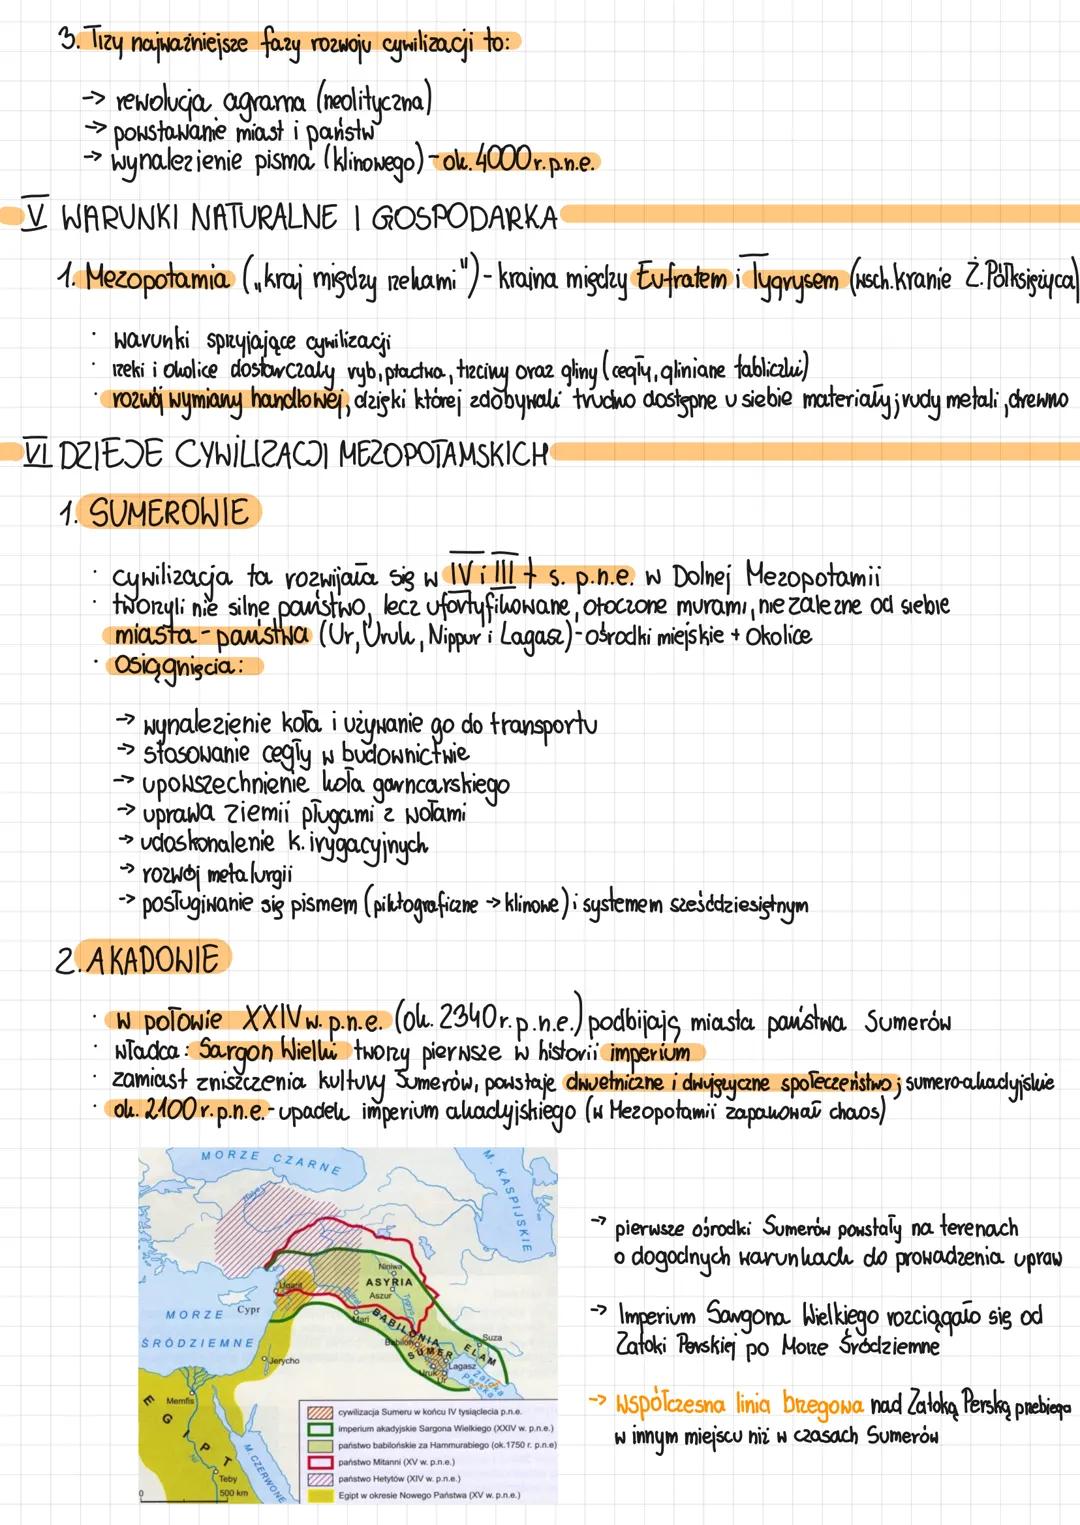 3. Trzy najważniejsze fazy rozwoju cywilizacji to:
-> rewolucja agrarna (neolityczna)
-> powstawanie miast i państw
-> wynalezienie pisma (klinowego) - ok. 4000 r. p.n.e.
V WARUNKI NATURALNE I GOSPODARKA
1. Mezopotamia („kraj między rzekami") - kraina między Eufratem i Tygrysem (wsch. kranie Ż. Półksiężyca)
· warunki sprzyjające cywilizacji
· rzeki i okolice dostarczały ryb, ptactwa, trzciny oraz gliny (cegły, gliniane tabliczki)
· rozwój wymiany handlowej, dzięki której zdobywali trudno dostępne u siebie materiały; rudy metali, drewno
VI DZIEJE CYWILIZACJI MEZOPOTAMSKICH
1. SUMEROWIE
· cywilizacja ta rozwijała się w IV i III t s. p.n.e. w Dolnej Mezopotamii
· tworzyli nie silne państwo, lecz ufortyfikowane, otoczone murami, niezależne od siebie
miasta - państwa (Ur, Uruk, Nippur i Lagasz) - ośrodki miejskie + okolice
· Osiągnięcia:
-> wynalezienie koła i używanie go do transportu
-> stosowanie cegły w budownictwie
-> upowszechnienie koła garncarskiego
-> uprawa ziemii pługami z wołami
-> udoskonalenie k. irygacyjnych
-> rozwój metalurgii
-> posługiwanie się pismem (piktograficzne -> klinowe) i systemem sześćdziesiętnym
2. AKADOWIE
· w połowie XXIV w. p.n.e. (ok. 2340 r. p.n.e.) podbijają miasta państwa Sumerów
· władca: Sargon Wielki tworzy pierwsze w historii imperium
· zamiast zniszczenia kultury Sumerów, powstaje dwuetniczne i dwujęzyczne społeczeństwo; sumero-akadyjskie
· ok. 2100 r. p.n.e. - upadek imperium akadyjskiego (w Mezopotamii zapanował chaos)
MORZE CZARNE
M. KASPIJSKIE
Niniwa
ASYRIA
Aszur
Ugarit
Cypr
MORZE
ŚRÓDZIEMNE
Mari
Tygrys
BABILONIA
Babilon
SUMER
Suza
ELAM
Lagasz
Uruk
Ur
Zatoka
Perska
Jerycho
Memfis
EGIPT
Nil
Teby
M. CZERWONE
0
500 km
cywilizacja Sumeru w końcu IV tysiąclecia p.n.e.
imperium akadyjskie Sargona Wielkiego (XXIV w. p.n.e.)
państwo babilońskie za Hammurabiego (ok.1750 r. p.n.e)
państwo Mitanni (XV w. p.n.e.)
państwo Hetytów (XIV w. p.n.e.)
Egipt w okresie Nowego Państwa (XV w. p.n.e.)
-> pierwsze ośrodki Sumerów powstały na terenach
o dogodnych warunkach do prowadzenia upraw
-> Imperium Sargona Wielkiego rozciągało się od
Zatoki Perskiej po Morze Śródziemne
-> Współczesna linia brzegowa nad Zatoką Perską przebiega
w innym miejscu niż w czasach Sumerów